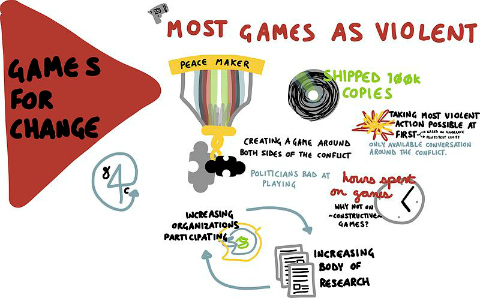 MOST GAMES AS VIOLENT
GAMES
FOR
CHANGE
PEACE MAKER
SHIPPED 100k
COPIES
TAKING MOST VIOLENT
ACTION POSSIBLE AT
FIRST
ONLY AVAILABLE CONVERSATION
AROUND THE CONFLICT.
CREATING A GAME AROUND
BOTH SIDES OF THE CONFLICT
POLITICIANS BAD AT
PLAYING
hours spent
on games
WHY NOT ON
-CONSTRUCTIVE-
GAMES?
g4c
INCREASING
ORGANIZATIONS
PARTICIPATING
$
INCREASING
BODY OF
RESEARCH